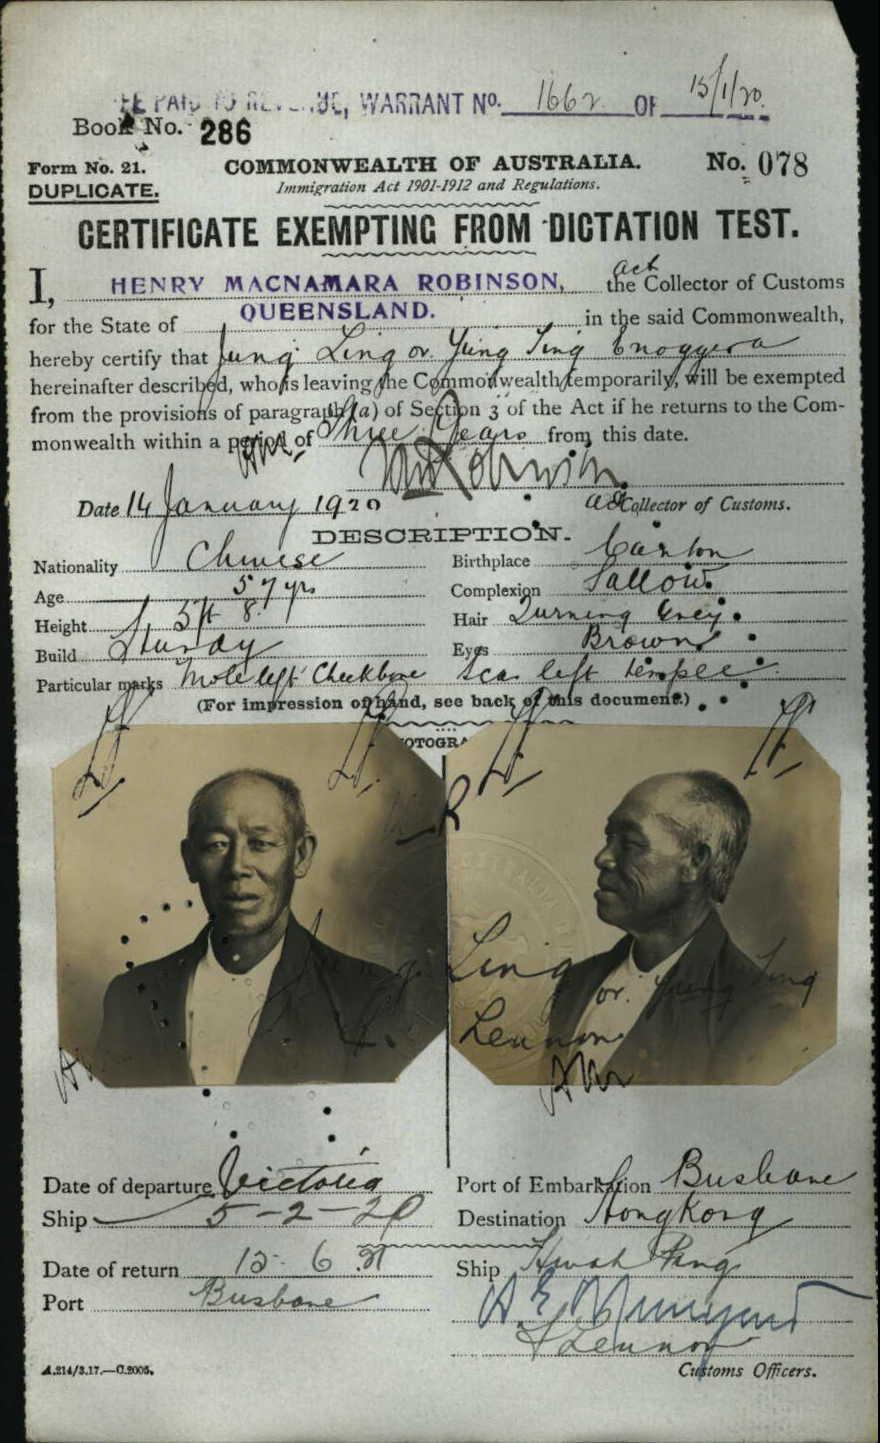 FEE PAID TO REVENUE, WARRANT No. 1662 OF 15/1/20.
Book No. 286
Form No. 21. COMMONWEALTH OF AUSTRALIA. No. 078
DUPLICATE. Immigration Act 1901-1912 and Regulations.
CERTIFICATE EXEMPTING FROM DICTATION TEST.
I, HENRY MACNAMARA ROBINSON, the act Collector of Customs
for the State of QUEENSLAND. in the said Commonwealth,
hereby certify that Jung Ling or Yung Ting Enoggera
hereinafter described, who is leaving the Commonwealth temporarily, will be exempted
from the provisions of paragraph (a) of Section 3 of the Act if he returns to the Com-
monwealth within a period of Three Years from this date.
Date 14 January 1920 act Collector of Customs.
DESCRIPTION.
Nationality Chinese Birthplace Canton
Age 57 yrs Complexion Sallow
Height 5 ft 8 Hair Turning Grey
Build Sturdy Eyes Brown
Particular marks Mole left Cheekbone Scar left temple
(For impression of hand, see back of this document.)
Jung Ling or Yung Ting
Lennon
Date of departure Victoria Port of Embarkation Brisbane
Ship 5-2-20 Destination Hong Kong
Date of return 12 6 21 Ship Hwah Ping
Port Brisbane
S Lennon
A.214/3.17.—C.2005. Customs Officers.